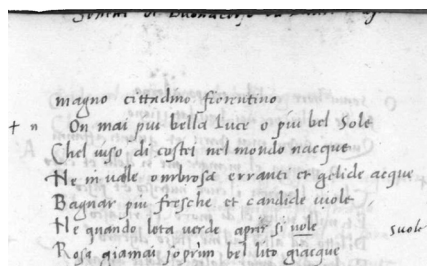 magno cittadino fiorentino
+ n On mai piu bella Luce o piu bel Sole
Chel uiso di costei nel mondo nacque
Ne in valle ombrosa erranti et gelide acque
Bagnar piu fresche et candide uiole
Ne quando lota verde aprir si uole suole
Rosa giamai soprim bel lito giacque